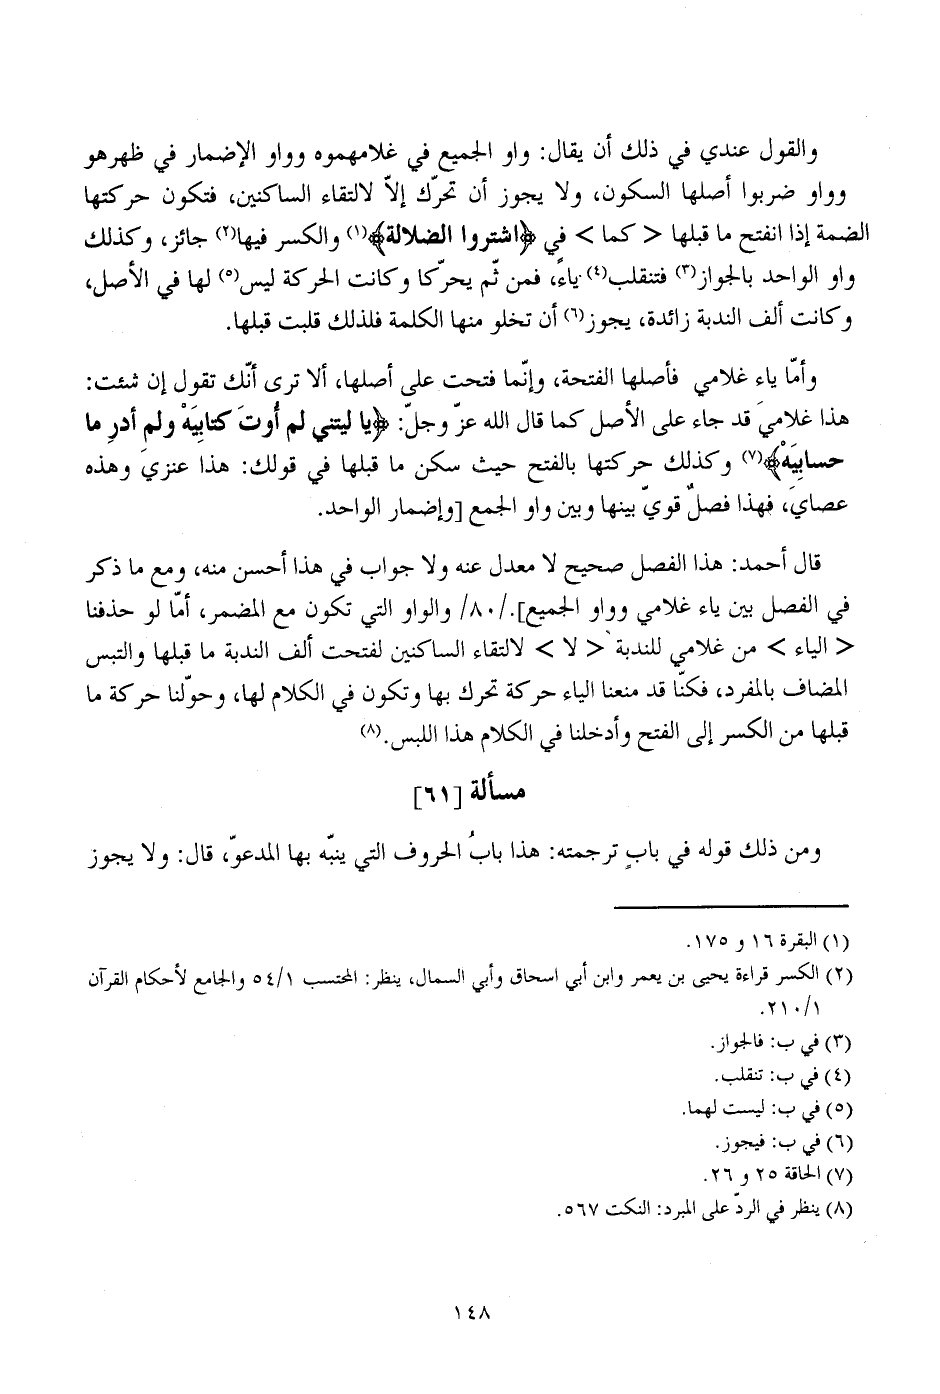 والقول عندي في ذلك أن يقال: واو الجميع في غلامهموه وواو الإضمار في ظهرهو
وواو ضربوا أصلها السكون، ولا يجوز أن تحرّك إلاّ لالتقاء الساكنين، فتكون حركتها
الضمة إذا انفتح ما قبلها < كما > في ﴿اشتروا الضلالة﴾(١) والكسر فيها(٢) جائز، وكذلك
واو الواحد بالجواز(٣) فتنقلب(٤) ياءً، فمن ثّم يحرّكا وكانت الحركة ليس(٥) لها في الأصل،
وكانت ألف الندبة زائدة، يجوز(٦) أن تخلو منها الكلمة فلذلك قلبت قبلها.
وأمّا ياء غلامي فأصلها الفتحة، وإنّما فتحت على أصلها، ألا ترى أنّك تقول إن شئت:
هذا غلاميَ قد جاء على الأصل كما قال الله عزّ وجلّ: ﴿يا ليتني لم أُوتَ كتابيَهْ ولم أدرِ ما
حسابِيَهْ﴾(٧) وكذلك حركتها بالفتح حيث سكن ما قبلها في قولك: هذا عنزيَ وهذه
عصايَ، فهذا فصلٌ قويّ بينها وبين واو الجمع [وإضمار الواحد.
قال أحمد: هذا الفصل صحيح لا معدل عنه ولا جواب في هذا أحسن منه، ومع ما ذكر
في الفصل بين ياء غلامي وواو الجميع]./٨٠/ والواو التي تكون مع المضمر، أمّا لو حذفنا
< الياء > من غلامي للندبة < لا > لالتقاء الساكنين لفتحت ألف الندبة ما قبلها والتبس
المضاف بالمفرد، فكنّا قد منعنا الياء حركة تحرك بها وتكون في الكلام لها، وحوّلنا حركة ما
قبلها من الكسر إلى الفتح وأدخلنا في الكلام هذا اللبس.(٨)
مسألة [٦١]
ومن ذلك قوله في بابٍ ترجمته: هذا بابُ الحروف التي ينبّه بها المدعوّ، قال: ولا يجوز
(١) البقرة ١٦ و ١٧٥.
(٢) الكسر قراءة يحيى بن يعمر وابن أبي اسحاق وأبي السمال، ينظر: المحتسب ٥٤/١ والجامع لأحكام القرآن
٢١٠/١.
(٣) في ب: فالجواز.
(٤) في ب: تنقلب.
(٥) في ب: ليست لهما.
(٦) في ب: فيجوز.
(٧) الحاقة ٢٥ و ٢٦.
(٨) ينظر في الردّ على المبرد: النكت ٥٦٧.
١٤٨